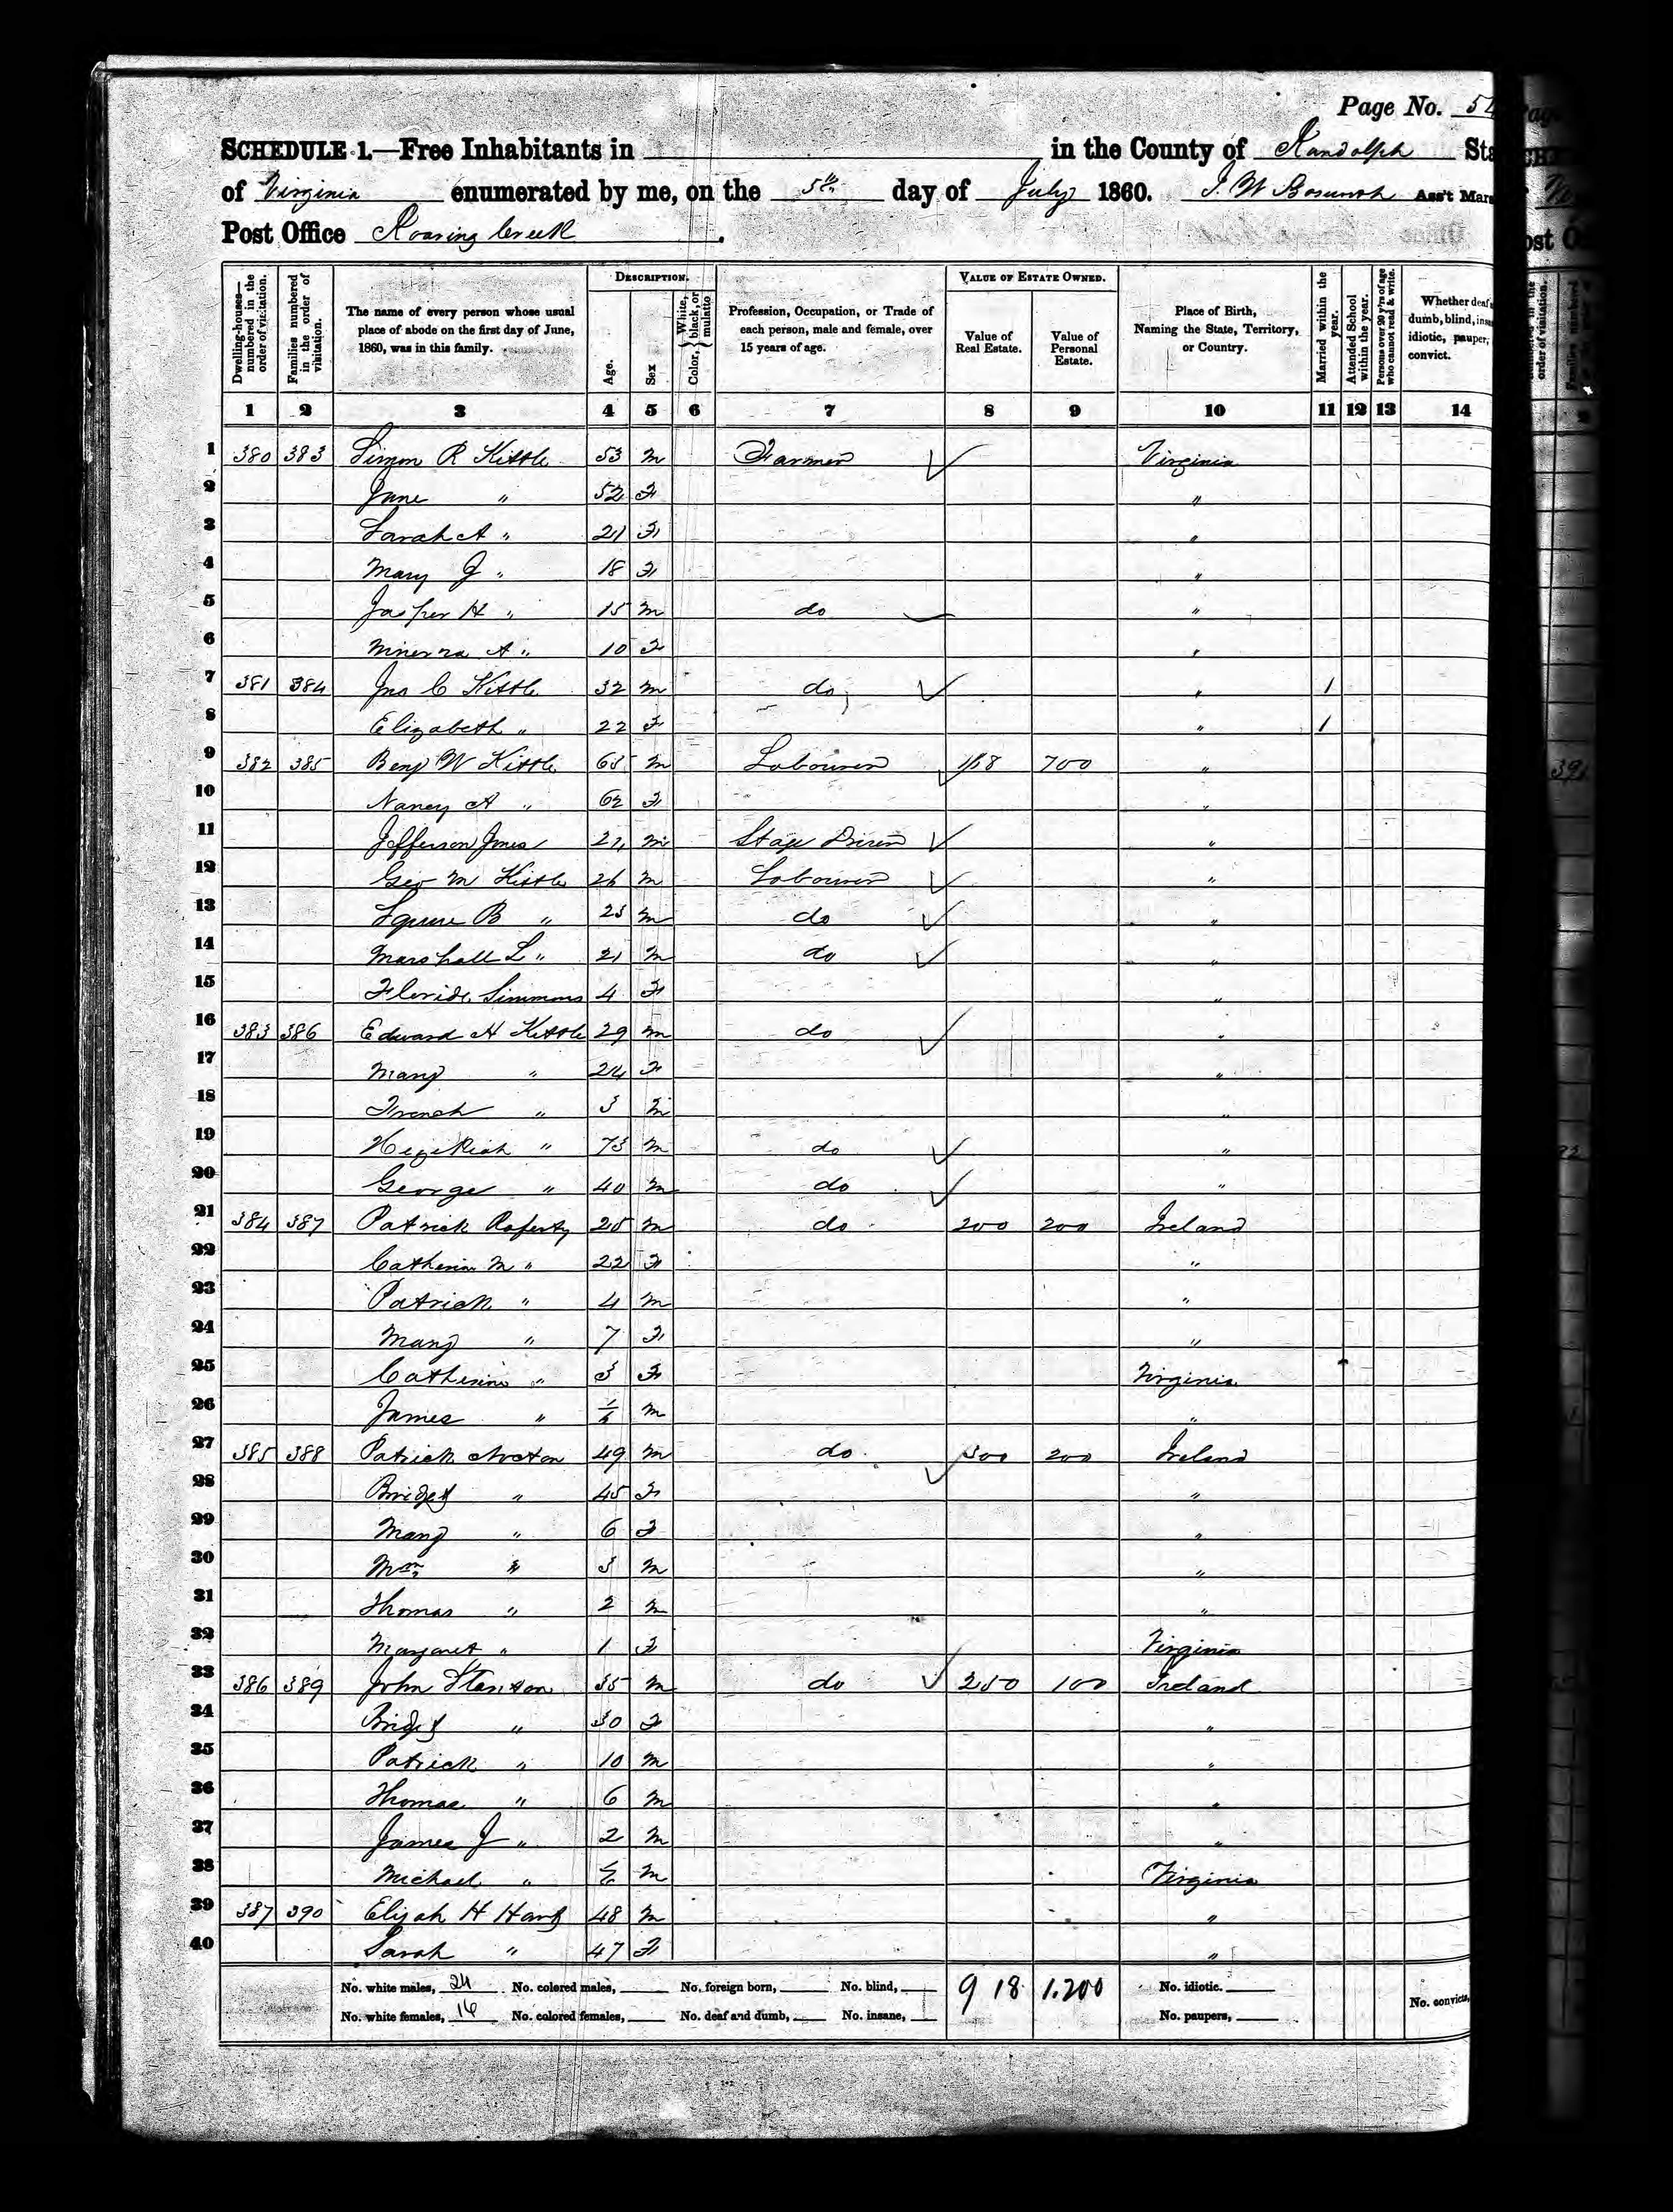 Page No. 54
SCHEDULE 1.—Free Inhabitants in in the County of Randolph Sta
of Virginia enumerated by me, on the 5th day of July 1860. Ass't Mars
Post Office Roaring Creek.
Dwelling-houses—numbered in the order of visitation. Families numbered in the order of visitation. The name of every person whose usual place of abode on the first day of June, 1860, was in this family. DESCRIPTION. Age. Sex Color, { White, black, or mulatto Profession, Occupation, or Trade of each person, male and female, over 15 years of age. VALUE OF ESTATE OWNED. Value of Real Estate. Value of Personal Estate. Place of Birth, Naming the State, Territory, or Country. Married within the year. Attended School within the year. Persons over 20 y'rs of age who cannot read & write. Whether deaf dumb, blind, insa idiotic, pauper, convict.
1 2 3 4 5 6 7 8 9 10 11 12 13 14
1 380 383 Simon R Kittle 53 m Farmer Virginia
2 Jane " 52 F "
3 Sarah A " 21 F "
4 Mary J " 18 F "
5 Jasper H " 15 m do "
6 Minerva A " 10 F "
7 381 384 Jno C Kittle 32 m do " 1
8 Elizabeth " 22 F " 1
9 382 385 Benj W Kittle 65 m Labourer 168 700 "
10 Nancy A " 62 F "
11 Jefferson Jones m Stage Driver "
12 Geo M Kittle 26 m Labourer "
13 Squire B " 23 m do "
14 Marshall L " 21 m do "
15 Florida Simmons 4 F "
16 383 386 Edward H Kittle 29 m do "
17 Mary " 24 F "
18 French " 3 m "
19 Hezekiah " 73 m do "
20 George " 40 m do "
21 384 387 Patrick Raferty 25 m do 200 200 Ireland
22 Catherin M " 22 F "
23 Patrick " 4 m "
24 Mary " 7 F "
25 Catherine " 3 F Virginia
26 James " m "
27 385 388 Patrick 49 m do 300 200 Ireland
28 Bridget " 45 F "
29 Mary " 6 F "
30 Wm " 3 m "
31 Thomas " 2 m "
32 Margaret " 1 F Virginia
33 386 389 John Stanton 35 m do 250 100 Ireland
34 Bridget " 30 F "
35 Patrick " 10 m "
36 Thomas " 6 m "
37 James J " 2 m "
38 Michael " m Virginia
39 387 390 Elijah H Hart 48 m "
40 Sarah " 47 F "
No. white males, 24 No. colored males, No. foreign born, No. blind, 918 1.200 No. idiotic.
No. white females, 16 No. colored females, No. deaf and dumb, No. insane, No. paupers, No. convicts,